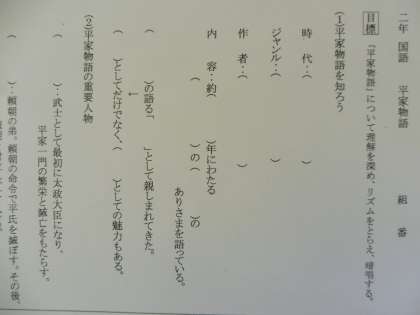 二年 国語 平家物語 組 番
目標 『平家物語』について理解を深め、リズムをとらえ、暗唱する。
(1)平家物語を知ろう
時 代:( )
ジャンル:( )
作 者:( )
内 容:約( )年にわたる
( )の( )の
ありさまを語っている。
( )の語る「 」として親しまれてきた。
←
( )としてだけでなく、( )としての魅力もある。
(2)平家物語の重要人物
( ):武士として最初に太政大臣になり、
平家一門の繁栄と滅亡をもたらす。
( ):頼朝の弟。頼朝の命令で平氏を滅ぼす。その後、